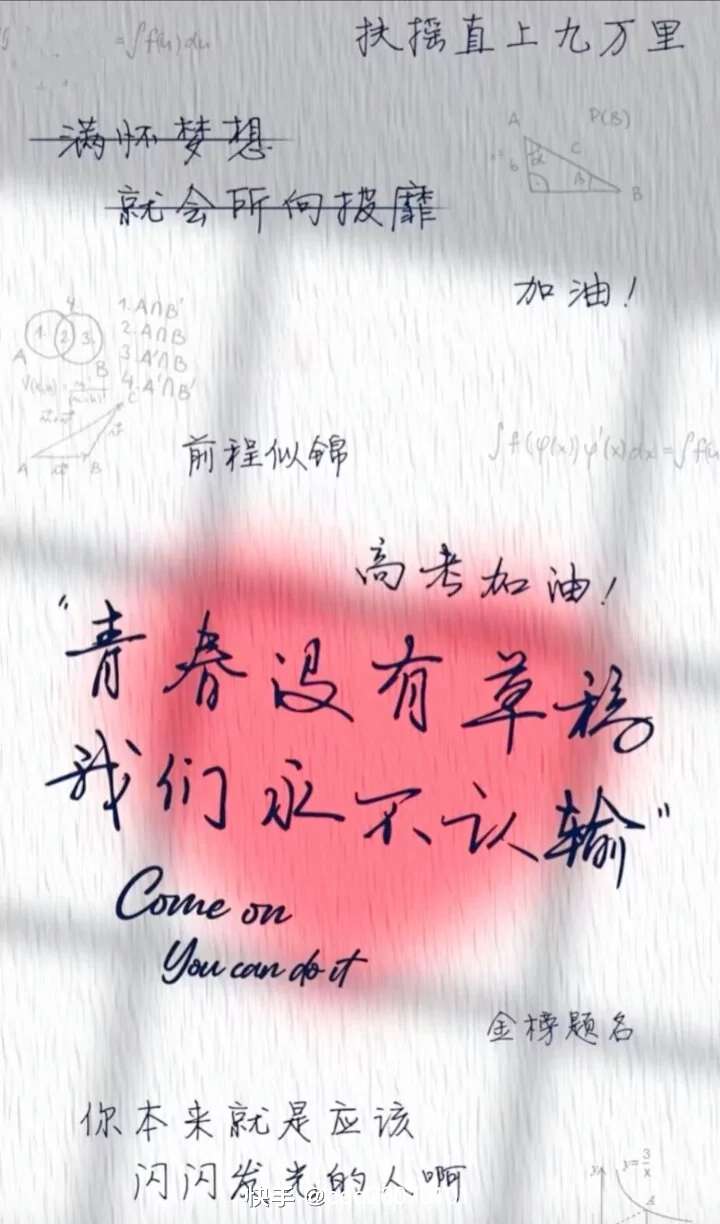 =∫f(u)du
扶摇直上九万里
满怀梦想
就会所向披靡
A
P(B)
C
b
α
B
B
加油！
4.
1. 2 3.
A
B
1. A∩B'
2. A∩B
3. A'∩B
4. A'∩B'
C
A
B
前程似锦
∫f(φ(x))φ'(x)dx=∫f(u
高考加油！
“青春没有草稿
我们永不认输”
Come on
You can do it
金榜题名
你本来就是应该
闪闪发光的人啊
快手 @
y=3/x
y
A